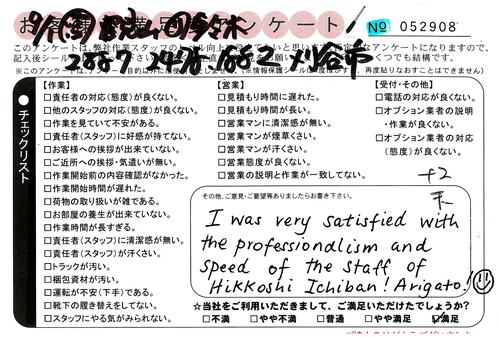 № 052908
このアンケートは、弊社作業スタッフの
チェックリスト
【作業】
□責任者の対応(態度)が良くない。
□他のスタッフの対応(態度)が良くない。
□作業を見ていて不安がある。
□責任者(スタッフ)に好感が持てない。
□お客様への挨拶が出来ていない。
□ご近所への挨拶・気遣いが無い。
□作業開始前の内容確認がなかった。
□作業開始時間が遅れた。
□荷物の取り扱いが雑である。
□お部屋の養生が出来ていない。
□作業時間が長すぎる。
□責任者(スタッフ)に清潔感が無い。
□責任者(スタッフ)が汗くさい。
□トラックが汚い。
□梱包資材が汚い。
□運転が不安(下手)である。
□靴下の履き替えをしてない。
□スタッフにやる気がみられない。
【営業】
□見積もり時間に遅れた。
□見積もり時間が長い。
□営業マンに清潔感が無い。
□営業マンが煙草くさい。
□営業マンが汗くさい。
□営業態度が良くない。
□営業の説明と作業が一致してない。
【受付・その他】
□電話の対応が良くない。
□オプション業者の説明
・作業が良くない。
□オプション業者の対応
(態度)が良くない。
+2
その他、ご意見・ご要望等ありましたらお書き下さい。
I was very satisfied with
the professionalism and
speed of the staff of
Hikkoshi Ichiban! Arigato!
☆当社をご利用いただきまして、ご満足いただけたでしょうか?
□不満 □やや不満 □普通 □やや満足 ☑満足